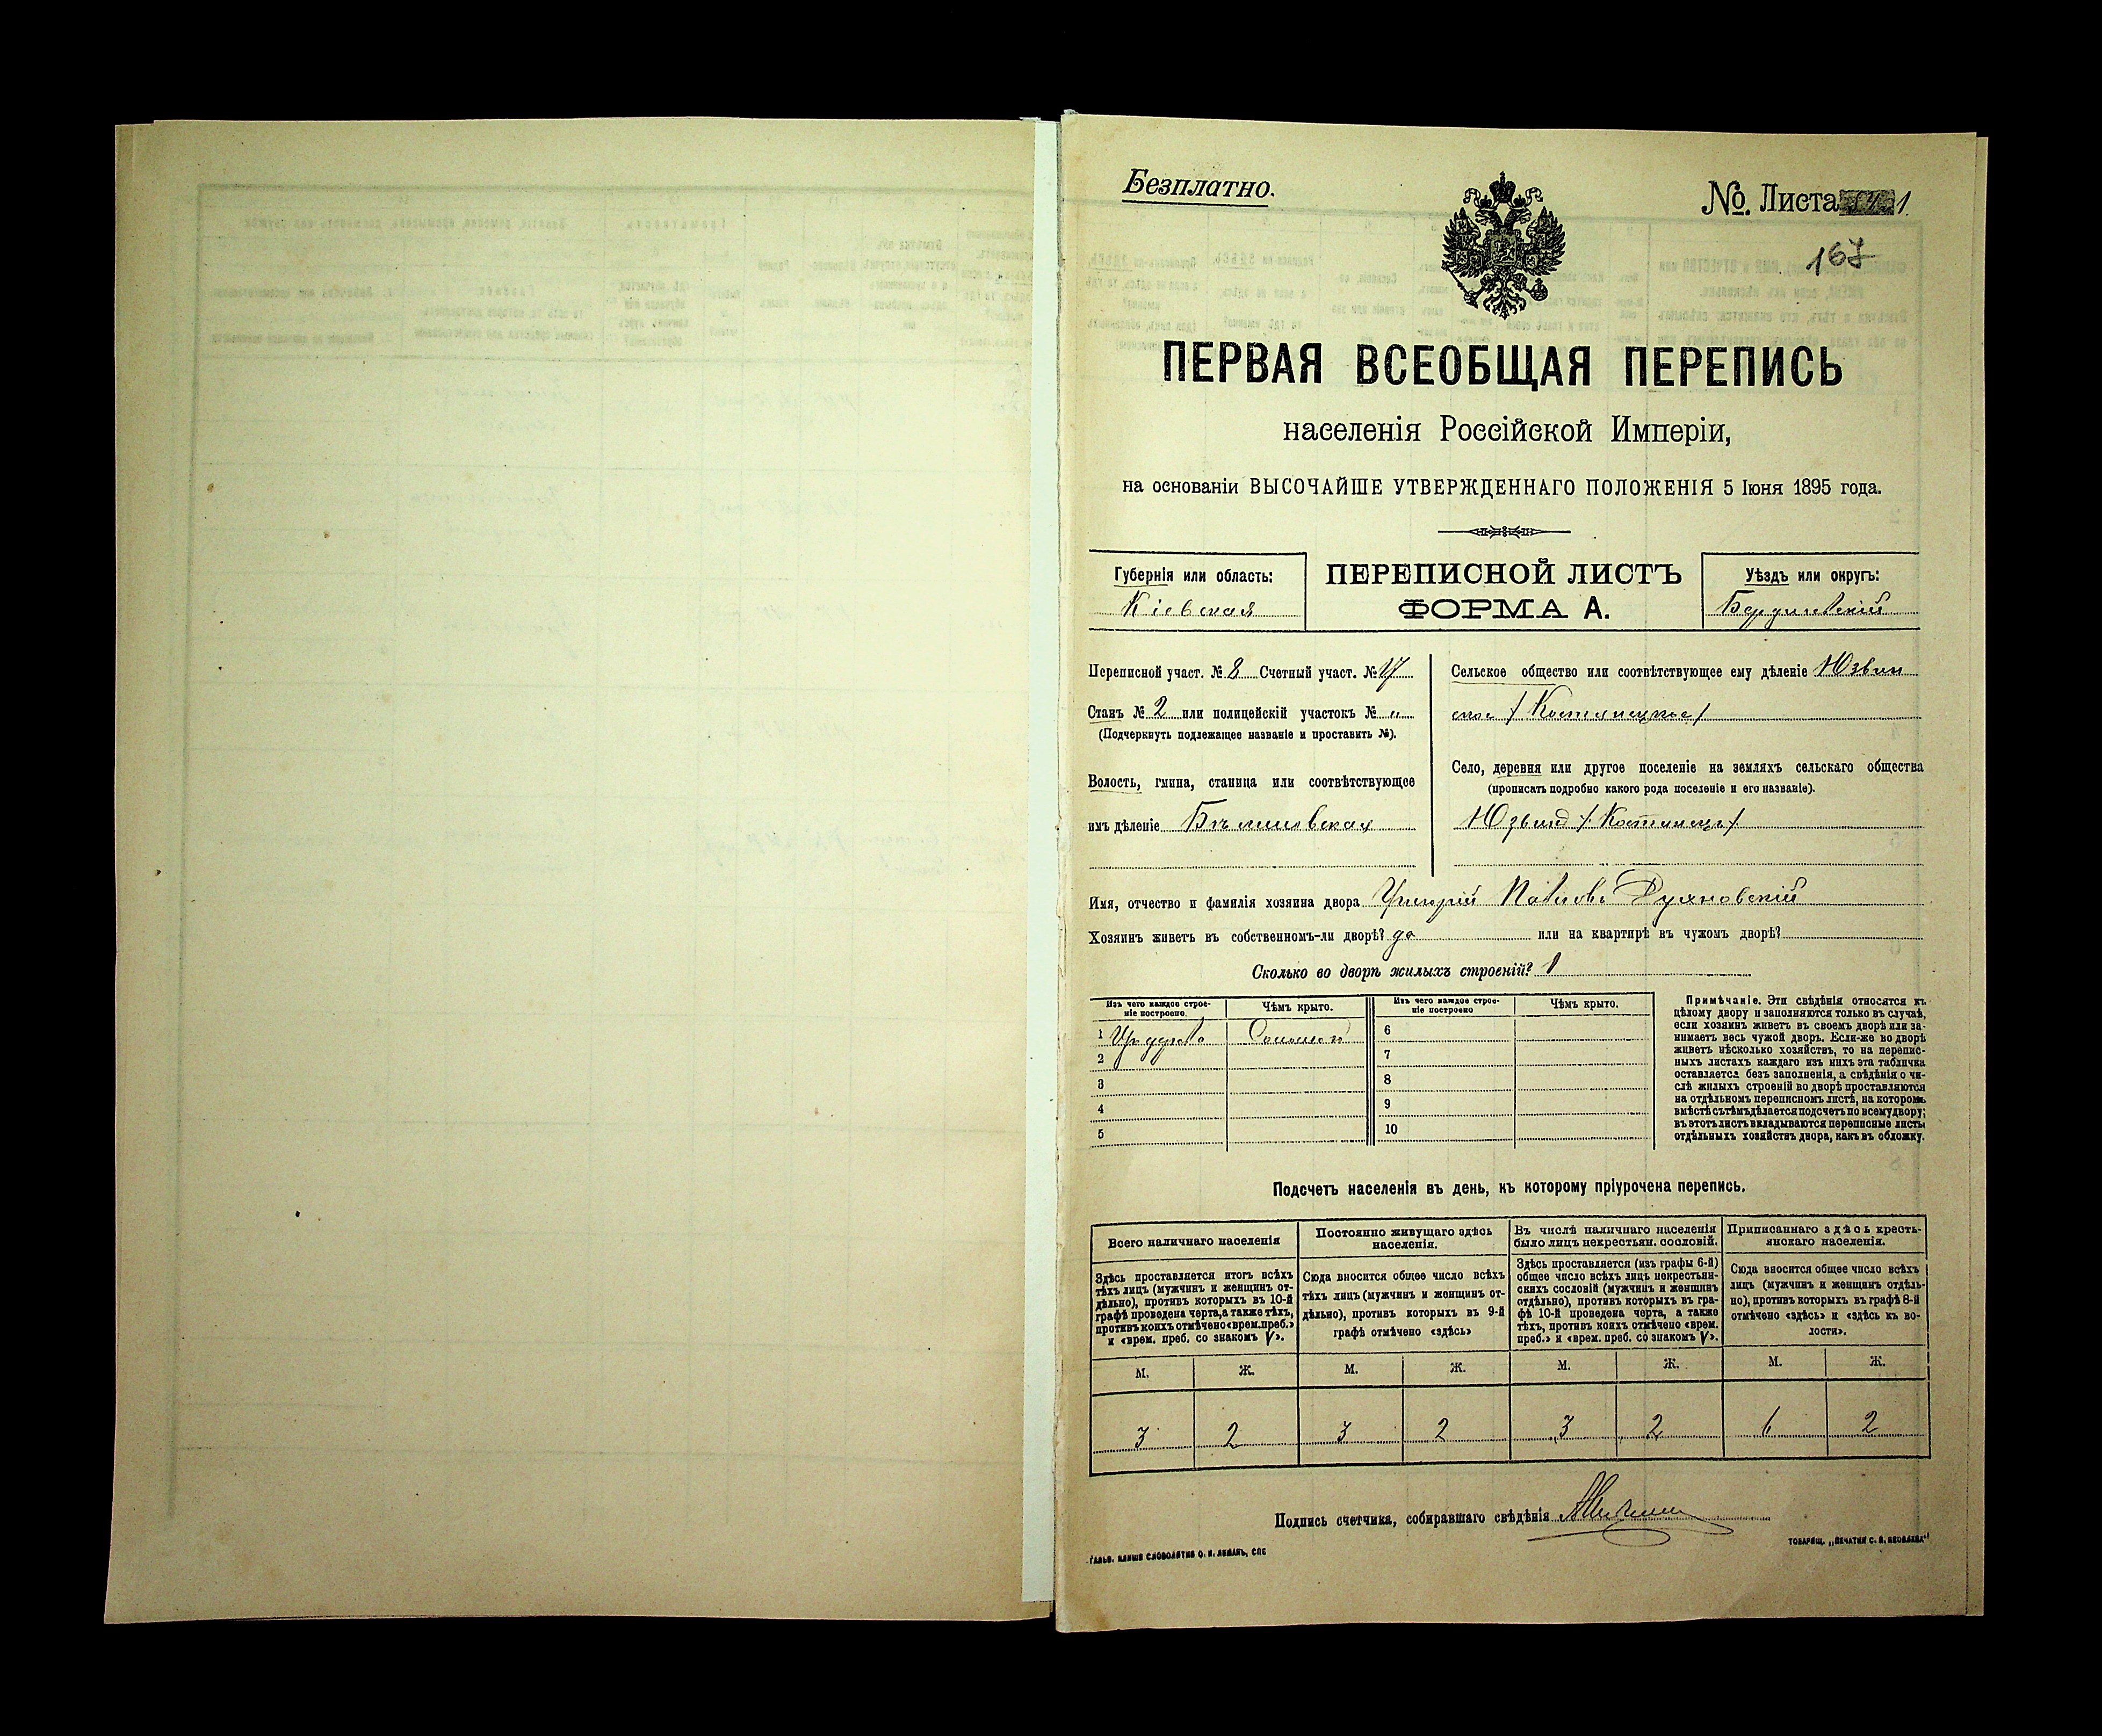 Безплатно.
№. Листа 1.
167
ПЕРВАЯ ВСЕОБЩАЯ ПЕРЕПИСЬ
населенія Россійской Имперіи,
на основаніи ВЫСОЧАЙШЕ УТВЕРЖДЕННАГО ПОЛОЖЕНІЯ 5 Іюня 1895 года.
Губернія или область:
Кіевская
ПЕРЕПИСНОЙ ЛИСТЪ
ФОРМА А.
Уѣздъ или округъ:
Бердичевскій
Переписной участ. № 8 Счетный участ. № 17
Станъ № 2 или полицейскій участокъ № "
(Подчеркнуть подлежащее названіе и проставить №).
Волость, гмина, станица или соотвѣтствующее
имъ дѣленіе Бѣлиловская
Сельское общество или соотвѣтствующее ему дѣленіе Юзвин
ское /Костянецкое/
Село, деревня или другое поселеніе на земляхъ сельскаго общества
(прописать подробно какого рода поселеніе и его названіе).
Юзьинд /Костинецъ/
Имя, отчество и фамилія хозяина двора Григорій Павловъ Духновскій
Хозяинъ живетъ въ собственномъ-ли дворѣ? да или на квартирѣ въ чужомъ дворѣ?
Сколько во дворѣ жилыхъ строеній? 1
Изъ чего каждое строе-
ніе построено.
Чѣмъ крыто.
Изъ чего каждое строе-
ніе построено
Чѣмъ крыто.
1 Изъ дерева Соломой
2
3
4
5
6
7
8
9
10
Примѣчаніе. Эти свѣдѣнія относятся къ
цѣлому двору и заполняются только въ случаѣ,
если хозяинъ живетъ въ своемъ дворѣ или за-
нимаетъ весь чужой дворъ. Если-же во дворѣ
живетъ нѣсколько хозяйствъ, то на перепис-
ныхъ листахъ каждаго изъ нихъ эта табличка
оставляется безъ заполненія, а свѣдѣнія о чи-
слѣ жилыхъ строеній во дворѣ проставляются
на отдѣльномъ переписномъ листѣ, на которомъ
вмѣстѣ съ тѣмъ дѣлается подсчетъ по всему двору;
въ этотъ листъ вкладываются переписные листы
отдѣльныхъ хозяйствъ двора, какъ въ обложку.
Подсчетъ населенія въ день, къ которому пріурочена перепись.
Всего наличнаго населенія
Здѣсь проставляется итогъ всѣхъ
тѣхъ лицъ (мужчинъ и женщинъ от-
дѣльно), противъ которыхъ въ 10-й
графѣ проведена черта, а также тѣхъ,
противъ коихъ отмѣчено «врем. преб.»
и «врем. преб. со знакомъ V».
Постоянно живущаго здѣсь
населенія.
Сюда вносится общее число всѣхъ
тѣхъ лицъ (мужчинъ и женщинъ от-
дѣльно), противъ которыхъ въ 9-й
графѣ отмѣчено «здѣсь»
Въ числѣ наличнаго населенія
было лицъ некрестьян. сословій.
Здѣсь проставляется (изъ графы 6-й)
общее число всѣхъ лицъ некрестьян-
скихъ сословій (мужчинъ и женщинъ
отдѣльно), противъ которыхъ въ гра-
фѣ 10-й проведена черта, а также
тѣхъ, противъ коихъ отмѣчено «врем.
преб.» и «врем. преб. со знакомъ V».
Приписаннаго здѣсь кресть-
янскаго населенія.
Сюда вносится общее число всѣхъ
лицъ (мужчинъ и женщинъ отдѣль-
но), противъ которыхъ въ графѣ 8-й
отмѣчено «здѣсь» и «здѣсь къ во-
лости».
М. Ж. М. Ж. М. Ж. М. Ж.
3 2 3 2 3 2 6 2
Подпись счетчика, собиравшаго свѣдѣнія
ГАЛЬВ. КЛИШЕ СЛОВОЛИТНИ О. И. ЛЕМАНЪ, СПБ
ТОВАРИЩ. „ПЕЧАТНЯ С. П. ЯКОВЛЕВА"